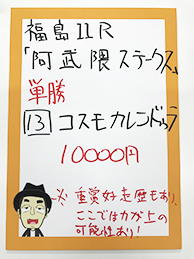 福島11R
「阿武隈ステークス」
単勝
13 コスモカレンドゥラ
10000円
※重賞好走歴もあり、
ここでは力が上の
可能性あり!